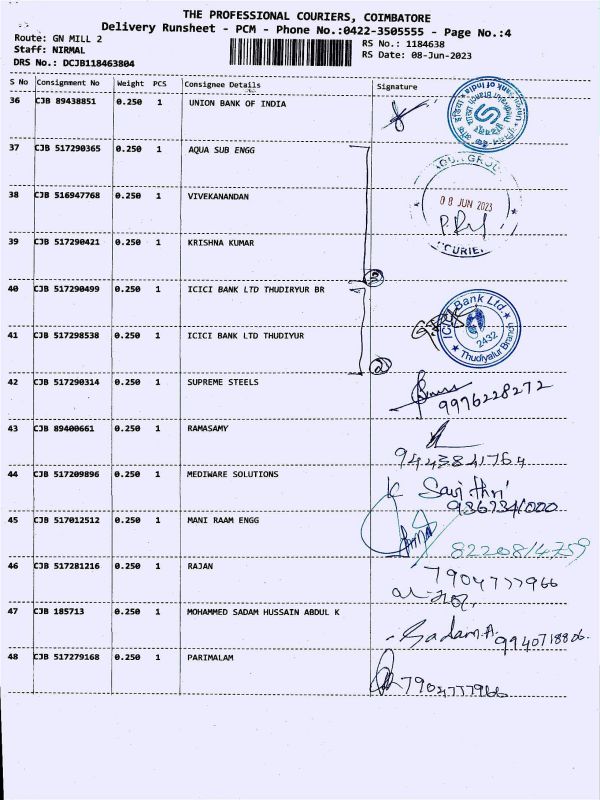 THE PROFESSIONAL COURIERS, COIMBATORE
Delivery Runsheet - PCM - Phone No.:0422-3505555 - Page No.:4
Route: GN MILL 2
RS No.: 1184638
Staff: NIRMAL
RS Date: 08-Jun-2023
DRS No.: DCJB118463804
S No Consignment No Weight PCS Consignee Details Signature
36 CJB 89438851 0.250 1 UNION BANK OF INDIA
37 CJB 517290365 0.250 1 AQUA SUB ENGG
38 CJB 516947768 0.250 1 VIVEKANANDAN
08 JUN 2023
39 CJB 517290421 0.250 1 KRISHNA KUMAR
40 CJB 517290499 0.250 1 ICICI BANK LTD THUDIRYUR BR
ICICI Bank Ltd.
2432
Thudiyalur Branch
41 CJB 517298538 0.250 1 ICICI BANK LTD THUDIYUR
42 CJB 517290314 0.250 1 SUPREME STEELS
9976228272
43 CJB 89400661 0.250 1 RAMASAMY
9443841764
44 CJB 517209896 0.250 1 MEDIWARE SOLUTIONS
K Savithri
9362341000
45 CJB 517012512 0.250 1 MANI RAAM ENGG
8220814759
46 CJB 517281216 0.250 1 RAJAN
7904777966
47 CJB 185713 0.250 1 MOHAMMED SADAM HUSSAIN ABDUL K
Sadam.A.
9940718806.
48 CJB 517279168 0.250 1 PARIMALAM
7904777966